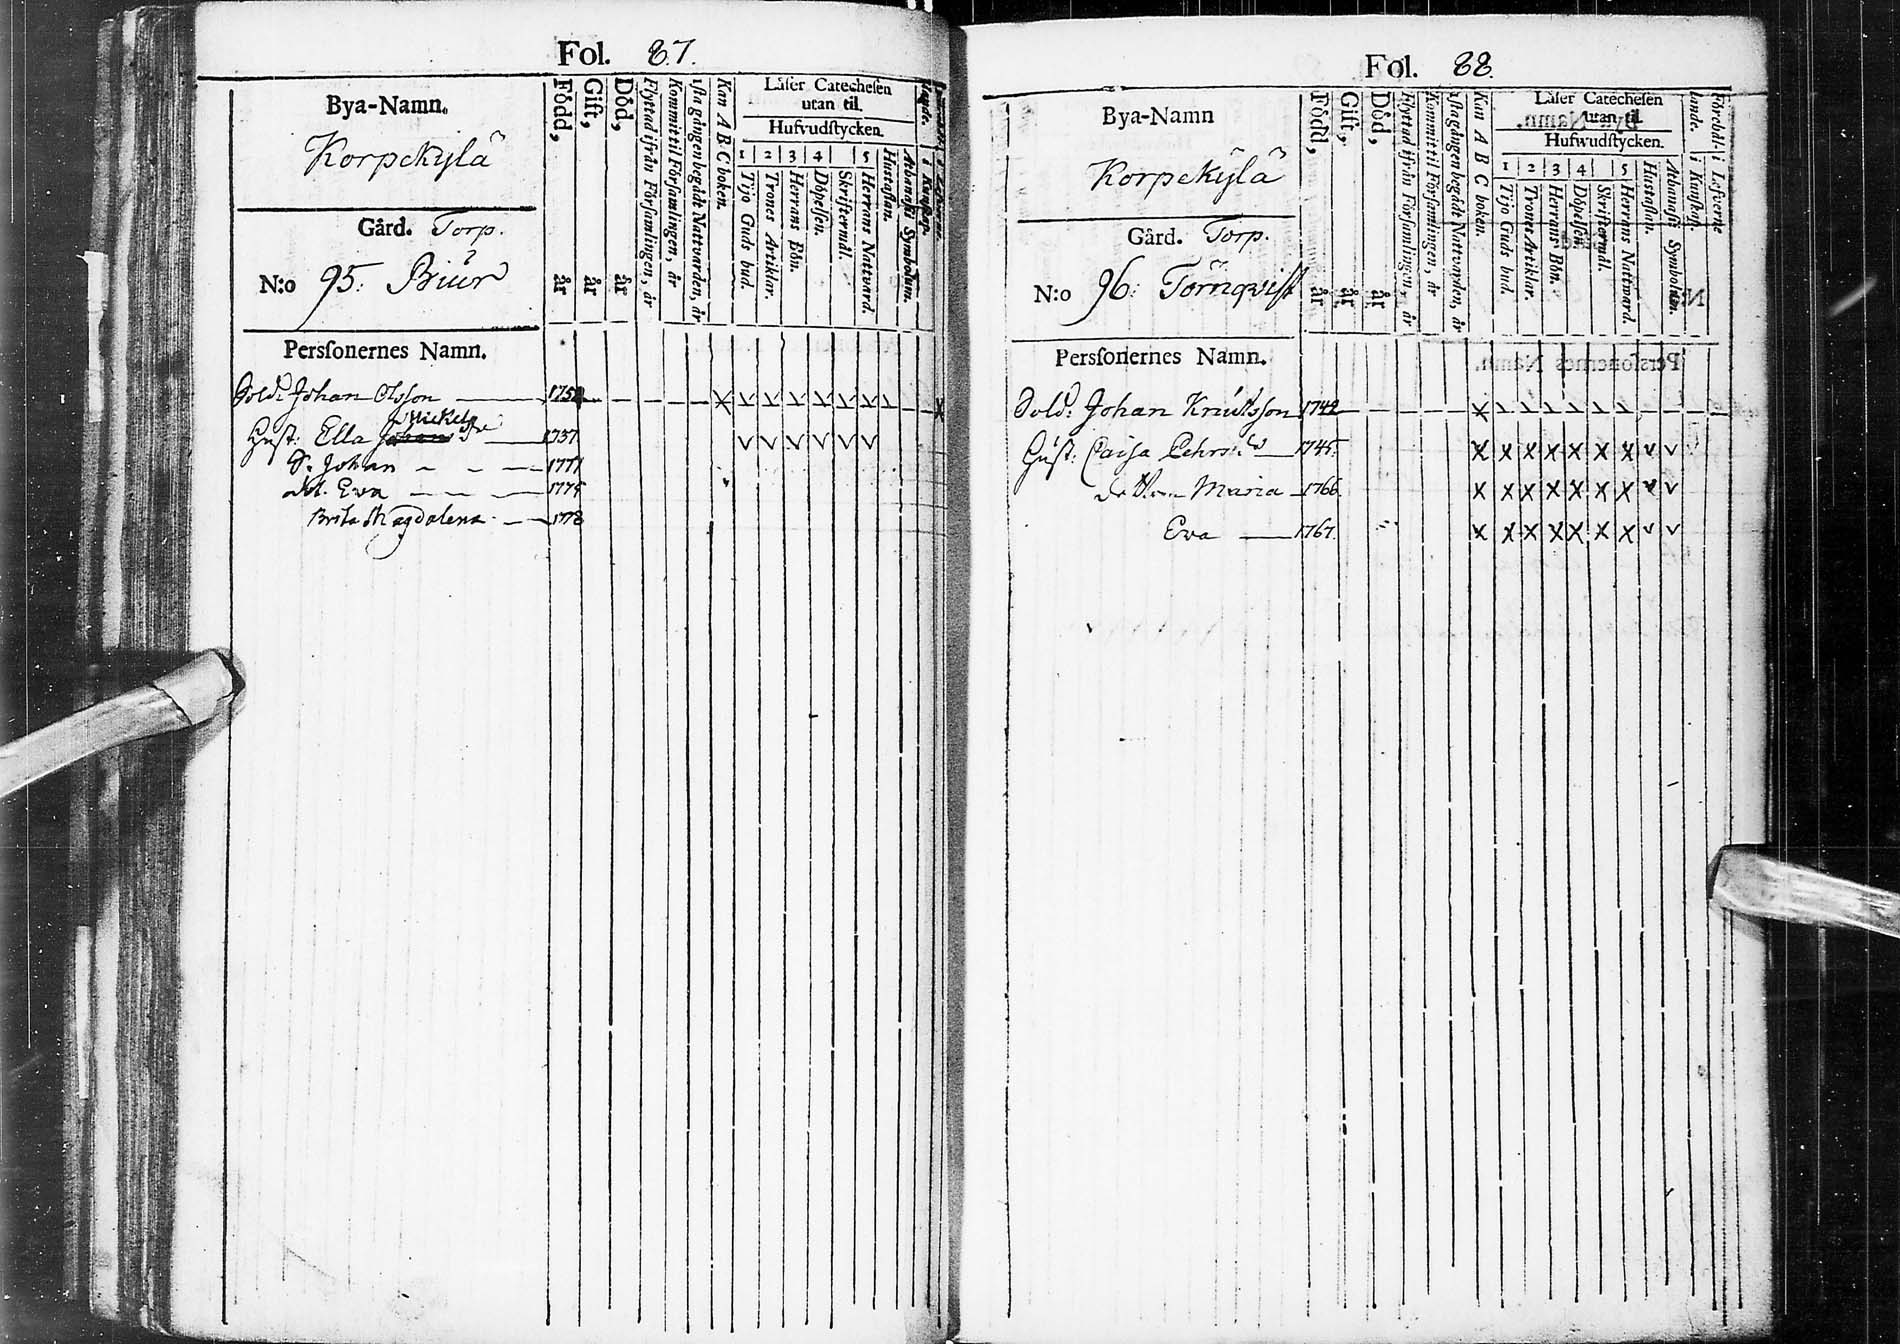 Fol. 87.
Bya-Namn.
Korpekylä
Gård. Torp.
N:o 95: Biur
Född, år
Gift, år
Död, år
Flyttud ifrån Församlingen, år
Kommit til Församlingen, år
1sta gången begådt Nattvarden, år
Kan A B C boken.
Låser Catechesen
utan til.
Hufvudstycken.
1 2 3 4 5
Tijo Guds bud.
Trones Artiklar.
Herrans Bön.
Döpelsen.
Skriftermål.
Herrans Nattvard.
Hustaflan.
Athanasii Symbolum.
Perssonernes Namn.
Sold: Johan Olsson 1752
Hust: Ella Johans Mickels 1757
S. Johan 1771
dot. Ewa 1775
Brita Magdalena 1778
Fol. 88.
Bya-Namn
Korpekylä
Gård. Torp.
N:o 96: Törnqvist
Född, år
Gift, år
Död, år
Flyttud ifrån Församlingen, år
Kommit til Församlingen, år
1sta gången begådt Nattvarden, år
Kan A B C boken.
Låser Catechesen
utan til.
Hufwudstycken.
1 2 3 4 5
Tijo Guds bud.
Trones Artiklar.
Herrans Bön.
Döpelsen.
Skriftermål.
Herrans Nattward.
Hustaflan.
Athanasii Symbolum.
Förehållande.
i Kunskap.
i Lefverne
Perssonernes Namn.
Sold: Johan Knutsson 1742
Hust: Caisa Pehrs 1745.
Maria 1766.
Ewa 1767.